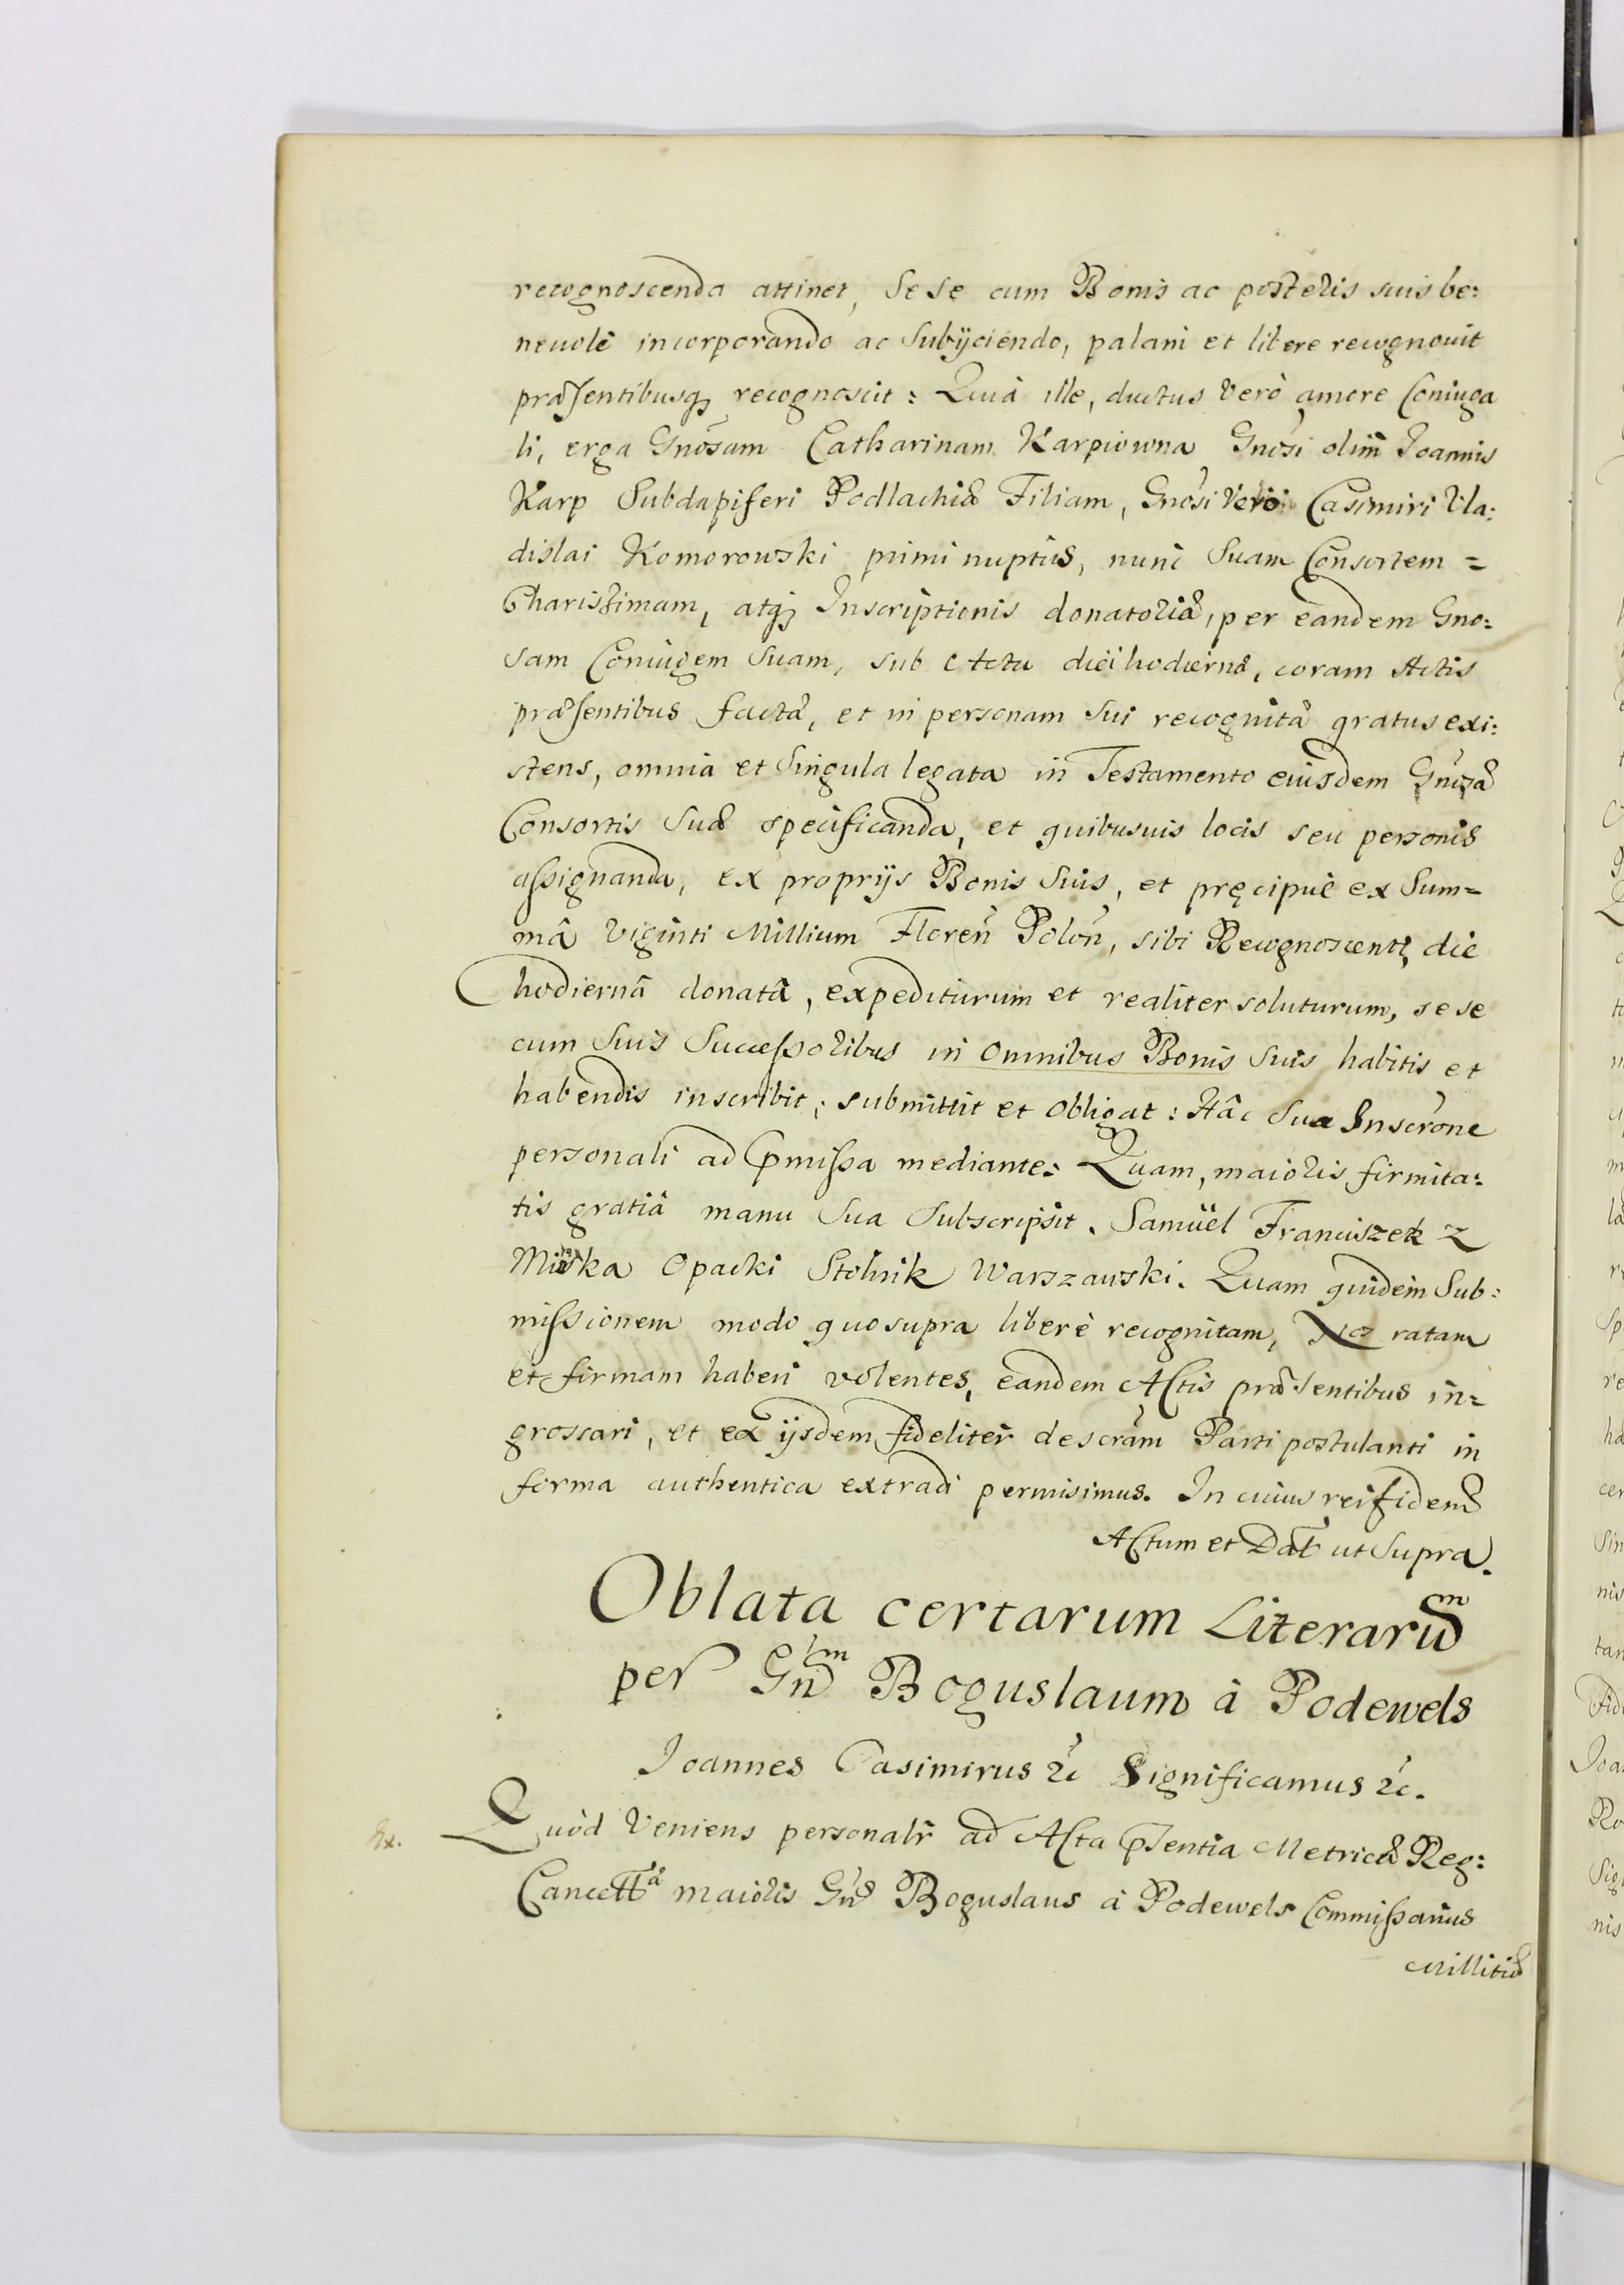 recognoscenda attinet, Sese cum Bonis ac posteris suis be:
neuolè incorporando ac Subÿciendo, palam et libere recognouit
præsentibusq; recognoscit: Quià ille, ductus verò amore Coniuga
li, erga Gnosam Catharinam Karpiowna Gnosi olim Joannis
Karp Subdapiferi Podlachiæ Filiam, Gnosi verò Casimiri Vla:
dislai Komorowski primi nuptiis, nunc Suam Consortem =
Charissimam, atq; Inscriptionis donatoriæ, per eandem Gno:
sam Coniugem Suam, sub Actu diei hodiernæ, coram Actis
præsentibus factæ, et in personam Sui recognitæ gratus exi:
stens, omnia et Singula legata in Testamento eiusdem Gnosæ
Consortis Suæ specificanda, et quibusuis locis seu personis
assignanda, ex proprÿs Bonis Suis, et pręcipuè ex Sum=
mâ Viginti Millium Floren Polon, sibi Recognoscenti die
hodiernâ donatâ, expediturum et realiter soluturum, sese
cum Suis Successoribus in omnibus Bonis Suis habitis et
habendis inscribit; submittit et obligat: Hâc Sua Inscrone
personali ad pmissa mediante: Quam, maioris firmita:
tis gratiâ manu Sua Subscripsit. Samuel Franciszek z
Minska Opacki Stolnik Warszawski. Quam quidem Sub:
missionem modo quo supra liberè recognitam, Nos ratam
et firmam haberi volentes, eandem Actis præsentibus in=
grossari, et ex ÿsdem fideliter descram Parti postulanti in
forma authentica extradi permisimus. In cuius rei fidem
Actum et Dat ut Supra.
Oblata certarum Literarum
per Gnm Boguslaum à Podewels
Joannes Casimirus &c Significamus &c.
Quòd Veniens personalr ad Acta psentia Metricæ Reg:
Cancellæ maioris Gns Boguslaus à Podewels Commissarius
Millitiæ